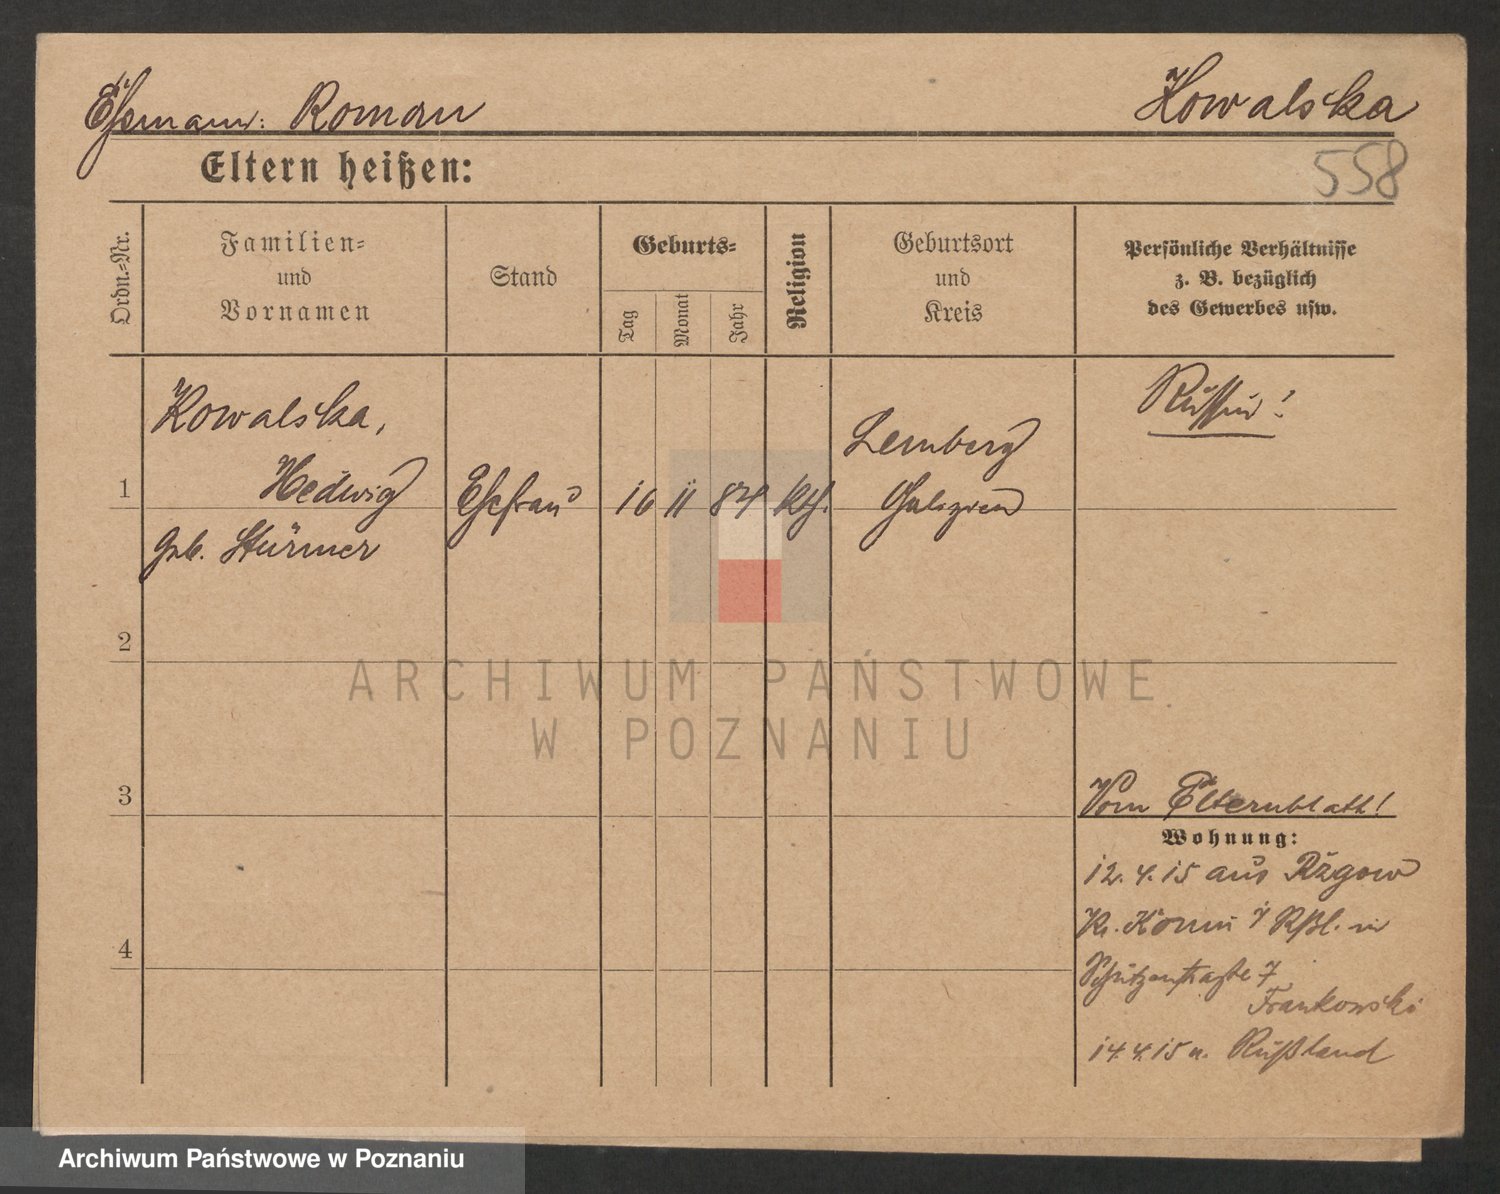 Ehemann: Roman Kowalska
558
Eltern heißen:
Ordn.-Nr.
Familien-
und
Vornamen
Stand
Geburts-
Tag
Monat
Jahr
Religion
Geburtsort
und
Kreis
Persönliche Verhältnisse
z. B. bezüglich
des Gewerbes usw.
Russin!
Kowalska,
1 Hedwig
geb. Stürmer
Ehefrau
16 11 84 kth.
Lemberg
Galizien
2
3
4
Vom Elternblatt!
Wohnung:
12.4.15 aus Rzgow
Kr. Konin i/ Rßl. in
Schützenstraße 7
Frankowski
14.4.15 n. Rußland
ARCHIWUM PAŃSTWOWE
W POZNANIU
Archiwum Państwowe w Poznaniu